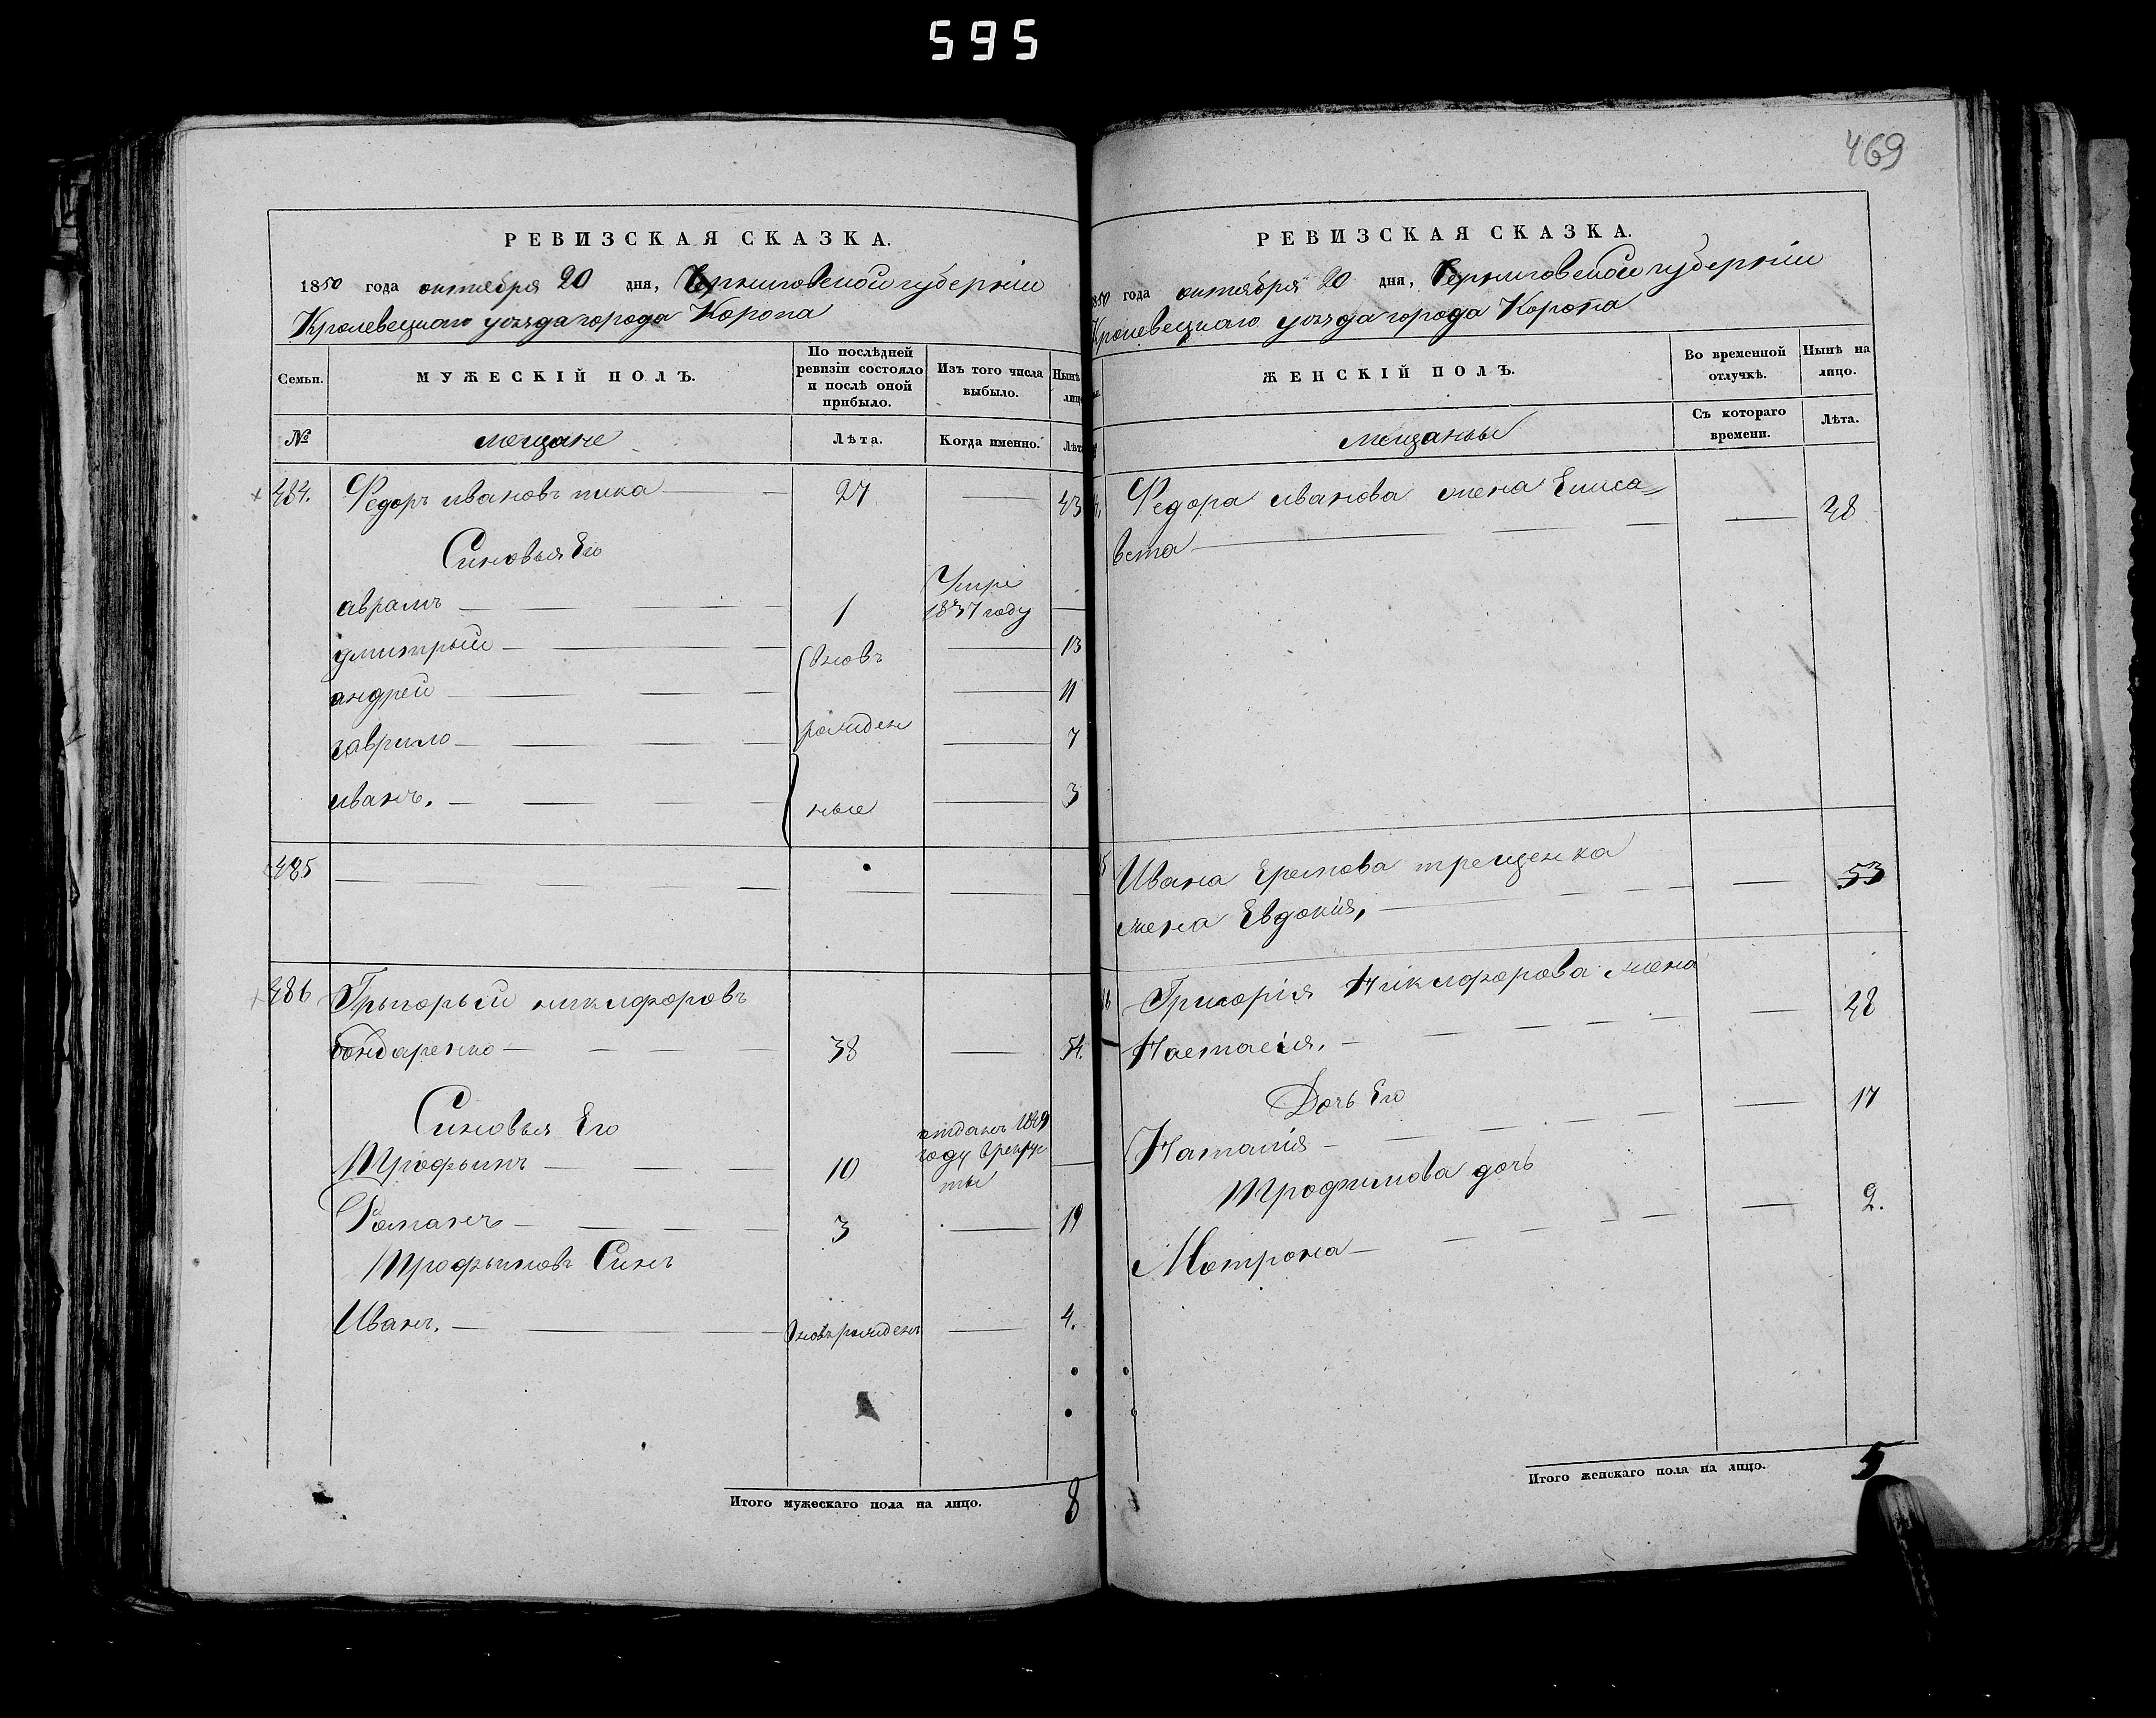 595
469
РЕВИЗСКАЯ СКАЗКА.
1850 года октября 20 дня, Черниговской губернiи
Кролевецкаго уезда города Коропа
Семьи.
МУЖЕСКІЙ ПОЛЪ.
По послѣдней ревизіи состояло и послѣ оной прибыло.
Изъ того числа выбыло.
Нынѣ
лицо
№
мещане
Лѣта.
Когда именно.
Лѣт
484. Федоръ ивановъ пика 27 43
Синовья Его
аврамъ 1 Умре 1837 году
дмитрый вновь 13
андрей 11
гаврило рожден 7
иванъ. ные 3
485
486 Грыгорый никифоровъ
бондаренко 38 54.
Синовья Его
Трофымъ 10 отданъ 1849 году в рекруты
Романъ 3 19
Трофымовъ Синъ
Иванъ. вновь рожденъ 4.
Итого мужескаго пола на лицо. 8
РЕВИЗСКАЯ СКАЗКА.
1850 года октября 20 дня, Черниговской губернiи
Кролевецкаго уезда города Коропа
ЖЕНСКІЙ ПОЛЪ.
Во временной отлучкѣ.
Нынѣ на лицо.
мещанки
Съ котораго времени.
Лѣта.
Федора иванова жена Елиса=
вета 48
Ивана Еремова трещенка 53
жена Евдокия,
Григорія Никифорова жена 48
Настасия.
Дочь Его 17
Наталия
Трофимова дочь 2.
Мотрона
Итого женскаго пола на лицо. 5